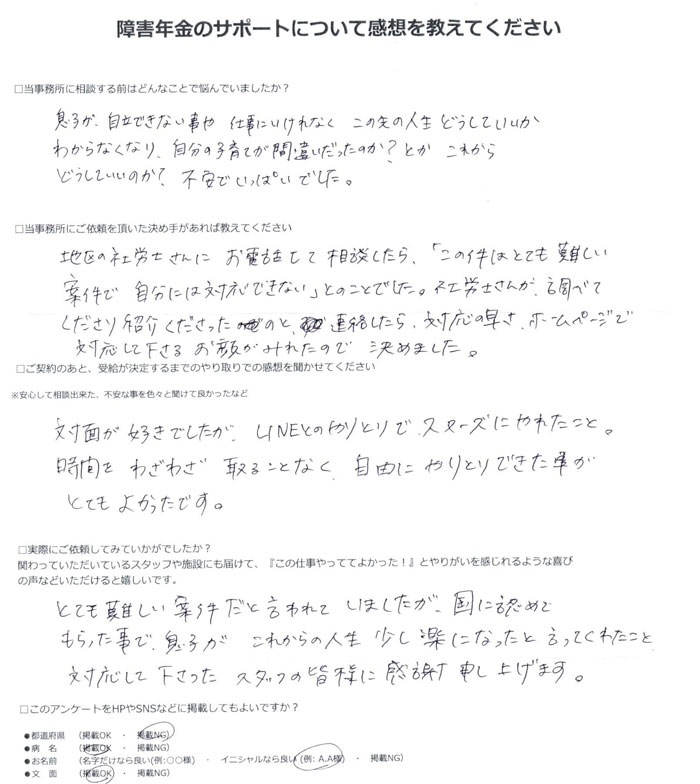 障害年金のサポートについて感想を教えてください
□当事務所に相談する前はどんなことで悩んでいましたか？
息子が、自立できない事や 仕事にいけれなく この先の人生 どうしていいか
わからなくなり、自分の子育てが間違いだったのか？とか これから
どうしていいのか？ 不安でいっぱいでした。
□当事務所にご依頼を頂いた決め手があれば教えてください
地区の社労士さんに お電話して 相談したら、「この件はとても難しい
案件で 自分には対応できない」とのことでした。社労士さんが、調べて
くださり紹介くださった のと、連絡したら、対応の早さ、ホームページで
対応して下さる お顔がみれたので 決めました。
□ご契約のあと、受給が決定するまでのやり取りでの感想を聞かせてください
※安心して相談出来た、不安な事を色々と聞けて良かったなど
対面が 好きでしたが、LINEとのやりとりで、スムーズにやれたこと。
時間を わざわざ 取ることなく、自由に やりとりできた事が
とても よかったです。
□実際にご依頼してみていかがでしたか？
関わっていただいているスタッフや施設にも届けて、『この仕事やっててよかった！』とやりがいを感じれるような喜び
の声などいただけると嬉しいです。
とても難しい 案件だと言われて いましたが、国に認めて
もらった事で、息子が これからの人生 少し楽になったと言ってくれたこと
対応して 下さった スタッフの皆様に 感謝 申し上げます。
□このアンケートをHPやSNSなどに掲載してもよいですか？
●都道府県 （掲載OK ・ 掲載NG）
●病 名 （掲載OK ・ 掲載NG）
●お名前 （名字だけなら良い(例:〇〇様) ・ イニシャルなら良い(例: A.A様) ・ 掲載NG）
●文 面 （掲載OK ・ 掲載NG）